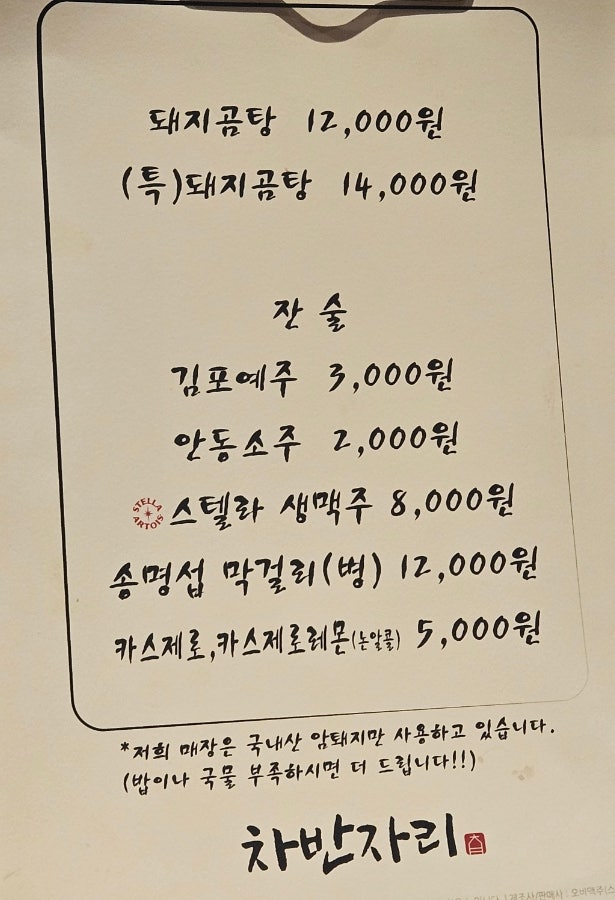 돼지곰탕 12,000원
(특)돼지곰탕 14,000원
잔 술
김포예주 3,000원
안동소주 2,000원
STELLA ARTOIS 스텔라 생맥주 8,000원
송명섭 막걸리(병) 12,000원
카스제로,카스제로레몬(논알콜) 5,000원
*저희 매장은 국내산 암퇘지만 사용하고 있습니다.
(밥이나 국물 부족하시면 더 드립니다!!)
차반자리
제조사/판매사 : 오비맥주(